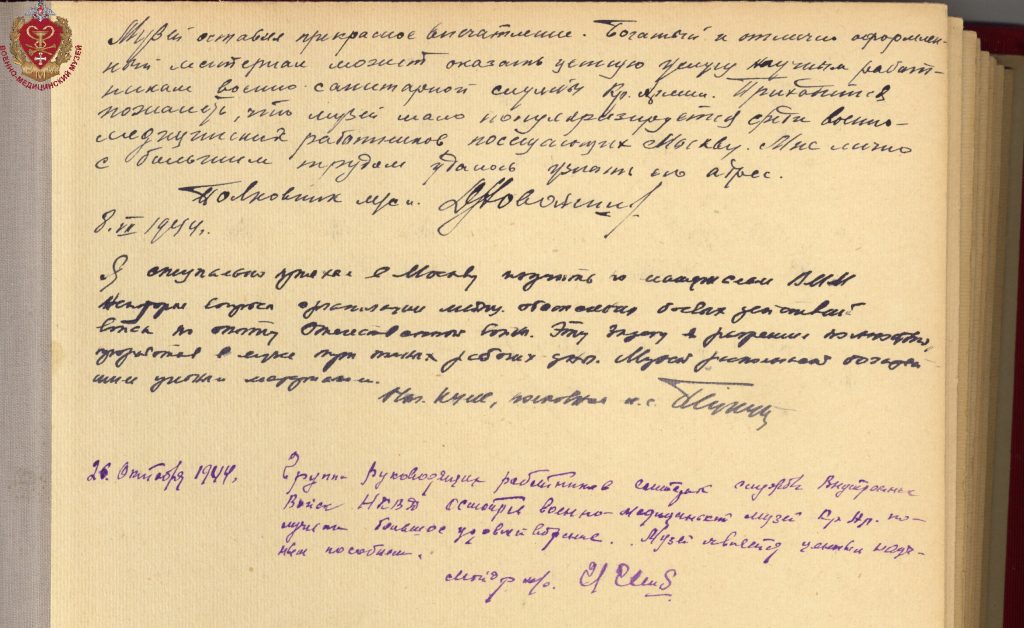 ВОЕННО-МЕДИЦИНСКИЙ МУЗЕЙ
Музей оставил прекрасное впечатление. Богатый и отлично оформлен-
ный материал может оказать ценную услугу научным работ-
никам военно-санитарной службы Кр. Армии. Приходится
пожалеть, что музей мало популяризируется среди военно-
медицинских работников посещающих Москву. Мне лично
с большим трудом удалось узнать его адрес.
Полковник м/с
8. VI 1944г.
Я специально приехал в Москву изучить по материалам ВММ
некоторые вопросы организации медиц. обеспечения боевых действий
войск по опыту Отечественной войны. Эту задачу я разрешил полностью,
проработав в музее три полных рабочих дня. Музей располагает богатей-
шими учебными материалами.
полковник м.с.
26. Октября 1944г.
Группа руководящих работников санитарн службы Внутренних
Войск НКВД осмотрев военно-медицинский музей Кр. Ар. по-
лучили большое удовлетворение. Музей является ценным науч-
ным пособием.
майор м/с.